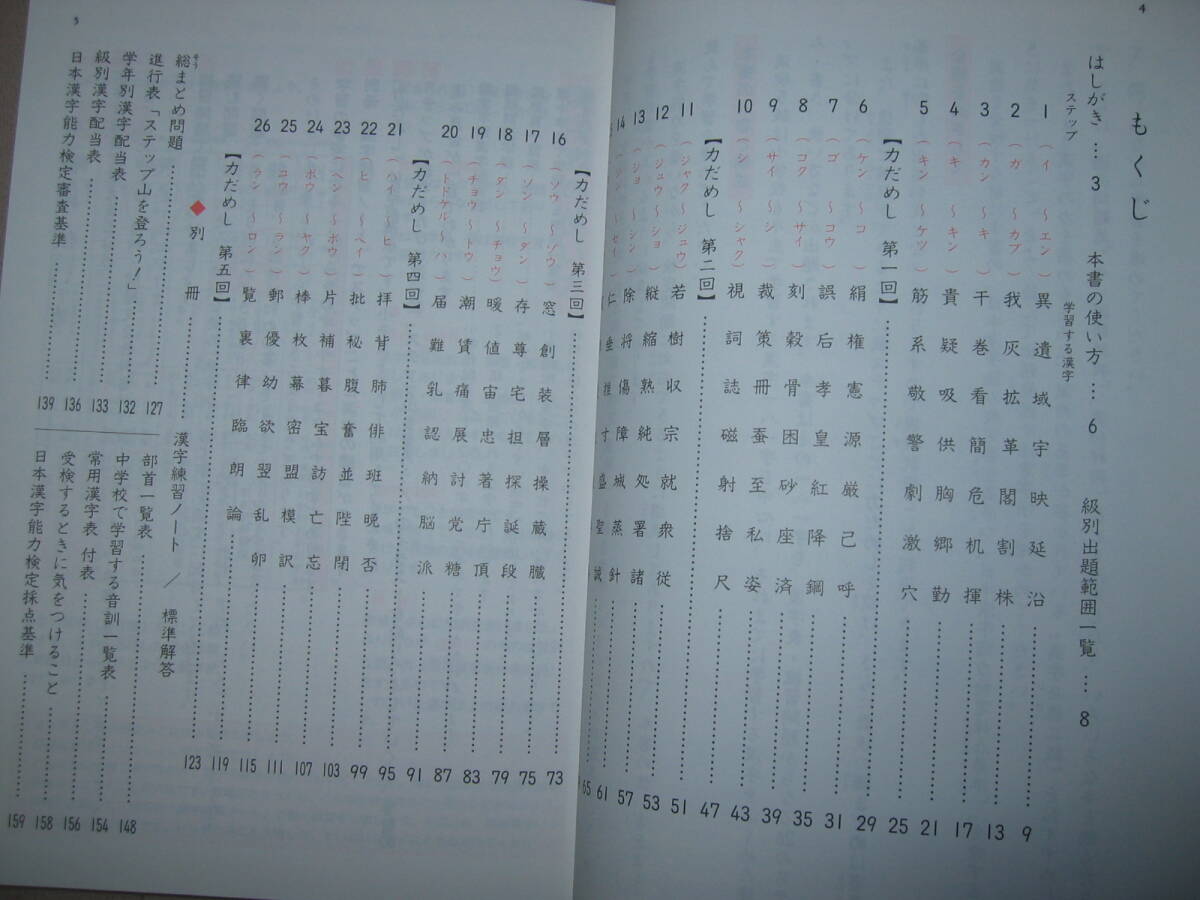 4
もくじ
はしがき … 3 本書の使い方 … 6 級別出題範囲一覧 … 8
ステップ 学習する漢字
1 (イ 〜エン) 異遺域宇映延沿 9
2 (ガ 〜カブ) 我灰拡革閣割株 13
3 (カン 〜キ) 干巻看簡危机揮 17
4 (キ 〜キン) 貴疑吸供胸郷勤 21
5 (キン 〜ケツ) 筋系敬警劇激穴 25
【力だめし 第一回】 29
6 (ケン 〜コ) 絹権憲源厳己呼 31
7 (ゴ 〜コウ) 誤后孝皇紅降鋼 35
8 (コク 〜サイ) 刻穀骨困砂座済 39
9 (サイ 〜シ) 裁策冊蚕至私姿 43
10 (シ 〜シャク) 視詞誌磁射捨尺 47
【力だめし 第二回】 51
11 (ジャク 〜ジュウ) 若樹収宗就衆従 53
12 (ジュウ 〜ショ) 縦縮熟純処署諸 57
13 (ジョ 〜シン) 除将傷障城蒸針 61
14 仁垂推寸盛聖誠 65
【力だめし 第三回】
5
16 (ソウ 〜ゾウ) 窓創装層操蔵臓 73
17 (ソン 〜ダン) 存尊宅担探誕段 75
18 (ダン 〜チョウ) 暖値宙忠著庁頂 79
19 (チョウ 〜トウ) 潮賃痛展討党糖 83
20 (トドケル〜ハ) 届難乳認納脳派 87
【力だめし 第四回】 91
21 (ハイ 〜ヒ) 拝背肺俳班晩否 95
22 (ヒ 〜ヘイ) 批秘腹奮並陛閉 99
23 (ヘン 〜ボウ) 片補暮宝訪亡忘 103
24 (ボウ 〜ヤク) 棒枚幕密盟模訳 107
25 (ユウ 〜ラン) 郵優幼欲翌乱卵 111
26 (ラン 〜ロン) 覧裏律臨朗論 115
【力だめし 第五回】 119
総まとめ問題 123
そう
進行表「ステップ山を登ろう!」 127
学年別漢字配当表 132
級別漢字配当表 133
日本漢字能力検定審査基準 136
139
◆別冊 漢字練習ノート / 標準解答
部首一覧表 148
中学校で学習する音訓一覧表 154
常用漢字表 付表 156
受検するときに気をつけること 158
日本漢字能力検定採点基準 159